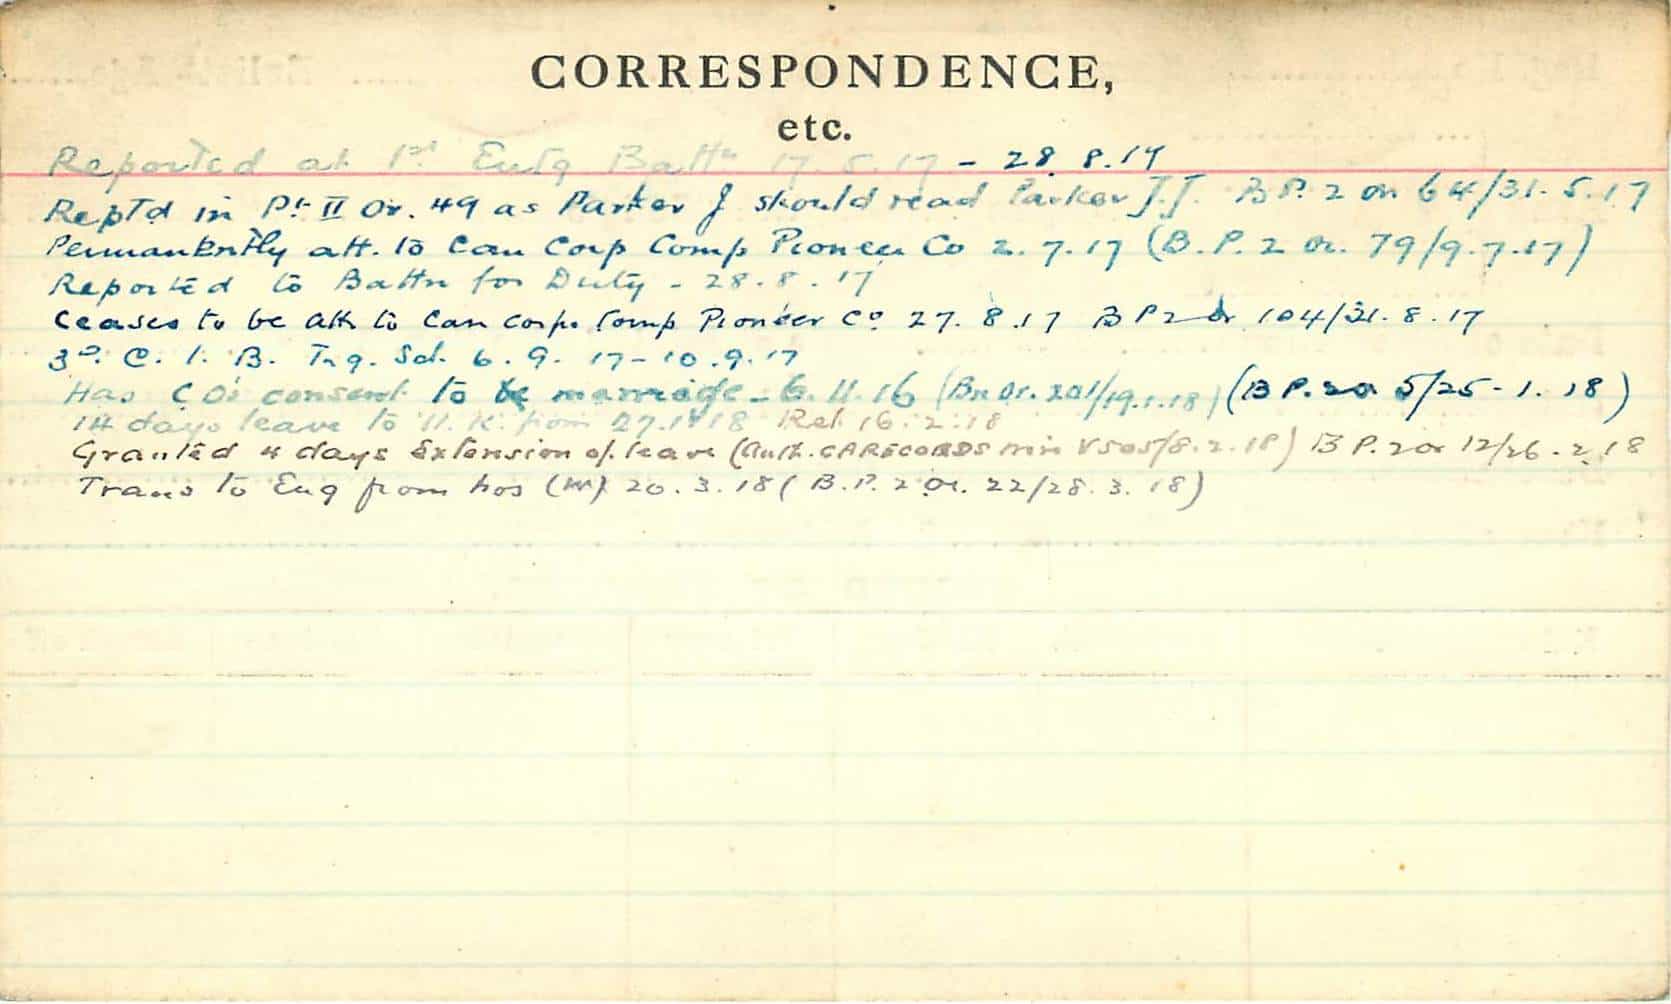 CORRESPONDENCE,
etc.
Reported at 1st Battn 17.5.17 - 28.8.17
Rept'd in Pt II Or. 49 as Parker J should read Parker J.J. B P. 2 Or 64/31.5.17
Permanently att. to Can Corp Comp Pioneer Co 2.7.17 (B.P. 2 Or. 79/9.7.17)
Reported to Battn for Duty - 28.8.17
Ceases to be att to Can Corps Comp Pioneer Co 27.8.17 B P 2 Or 104/31.8.17
C. I. B. Trg. Sch. 6.9.17-10.9.17
Has C O's consent to marriage - 6.11.16 (Bn Or. 201/19.1.18) (B P. 2 Or 5/25-1.18)
14 days leave to U.K. from 27.1.18 Ret 16.2.18
Granted 4 days Extension of leave (Auth. CARECORDS V505/8.2.18) B P. 2 Or 12/26.2.18
Trans to Eng from hos 20.3.18 (B.P. 2 Or. 22/28.3.18)